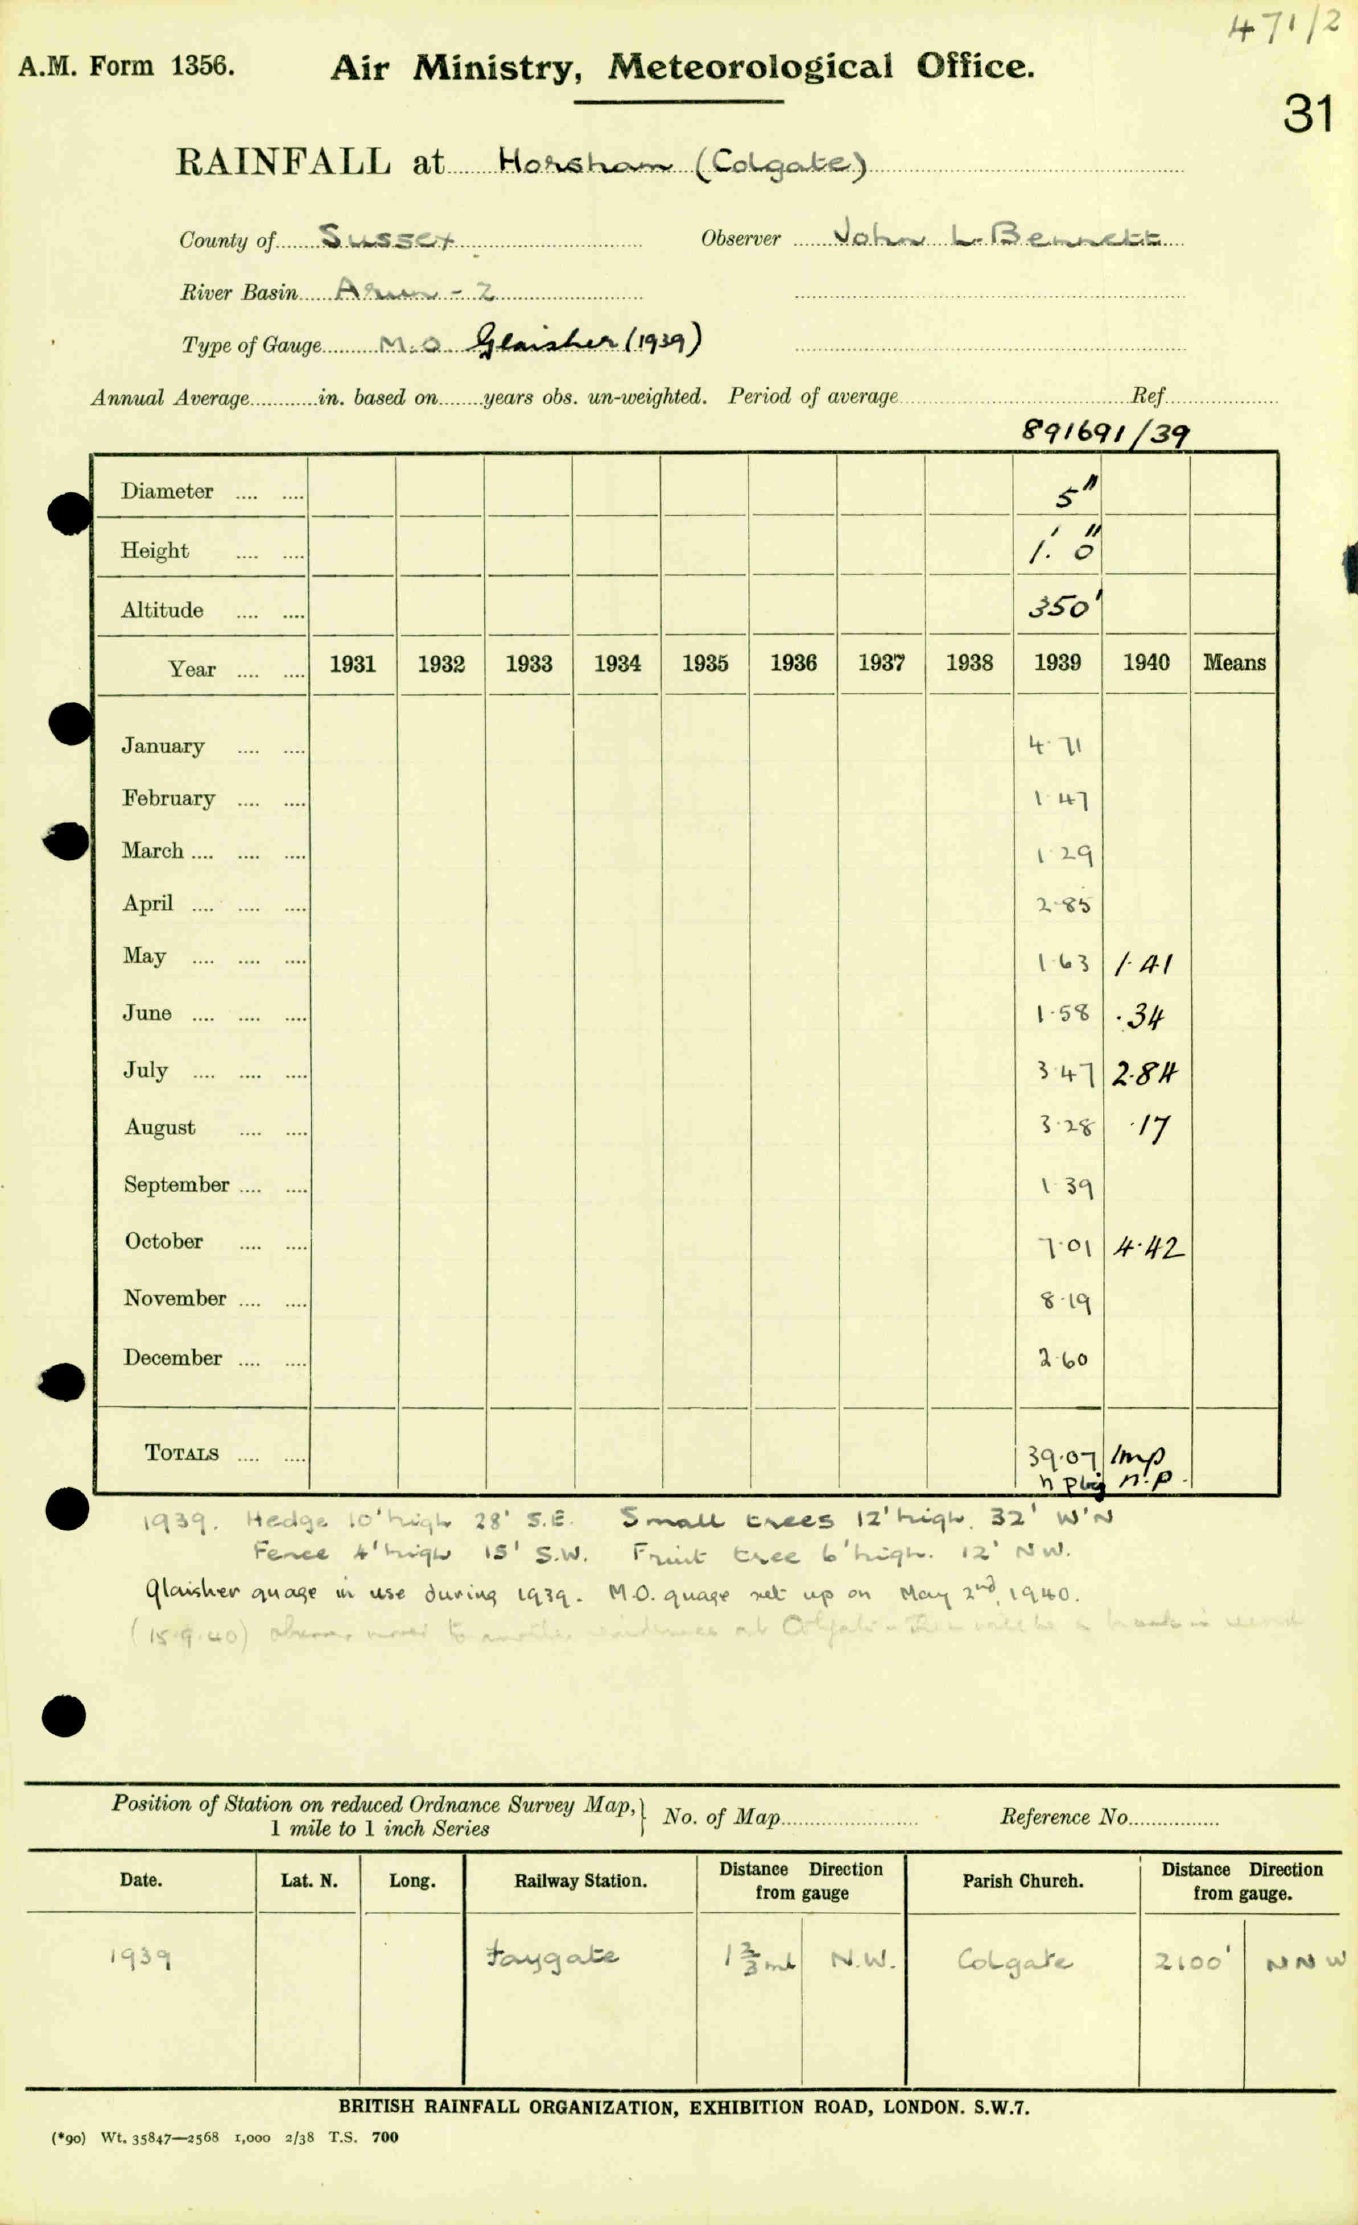 471/2
A.M. Form 1356. Air Ministry, Meteorological Office.
31
RAINFALL at Horsham (Colgate)
County of Sussex Observer John L. Bennett
River Basin Arun - 2
Type of Gauge M.O. Glaisher (1939)
Annual Average in. based on years obs. un-weighted. Period of average Ref
891691/39
Diameter 5"
Height 1' 0"
Altitude 350'
Year 1931 1932 1933 1934 1935 1936 1937 1938 1939 1940 Means
January 4.71
February 1.47
March 1.29
April 2.85
May 1.63 1.41
June 1.58 .34
July 3.47 2.84
August 3.28 .17
September 1.39
October 7.01 4.42
November 8.19
December 2.60
TOTALS 39.07 Imp
n.p.
1939. Hedge 10' high 28' S.E. Small trees 12' high. 32' W'N
Fence 4' high 15' S.W. Fruit tree 6' high. 12' NW.
Glaisher guage in use during 1939. M.O. guage set up on May 2nd, 1940.
(15.9.40) observer moved to another residence at Colgate - There will be a break in record
Position of Station on reduced Ordnance Survey Map, } No. of Map Reference No.
1 mile to 1 inch Series
Date. Lat. N. Long. Railway Station. Distance Direction from gauge Parish Church. Distance Direction from gauge.
1939 Faygate 1 2/3 ml N.W. Colgate 2100' N N W
BRITISH RAINFALL ORGANIZATION, EXHIBITION ROAD, LONDON. S.W.7.
(*90) Wt. 35847—2568 1,000 2/38 T.S. 700